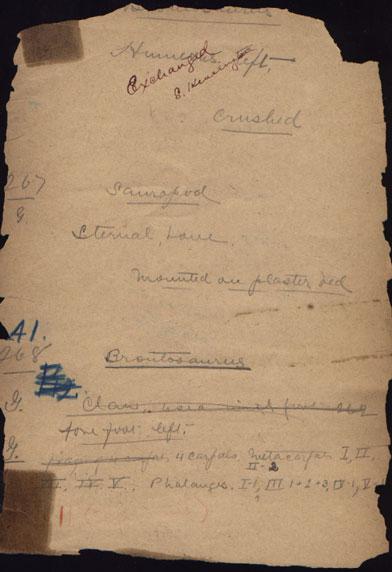 Humerus left,
Exchanged
Crushed
267
G.
Sauropod
Sternal, bone,
mounted on plaster bed
A1.
268
Brontosaurus
G.
Claw,
fore foot left,
G.
4 carpals, metacarpals I, II,
II-2
III, IV, V. Phalanges, I-1, III 1+2+3, IV-1, V